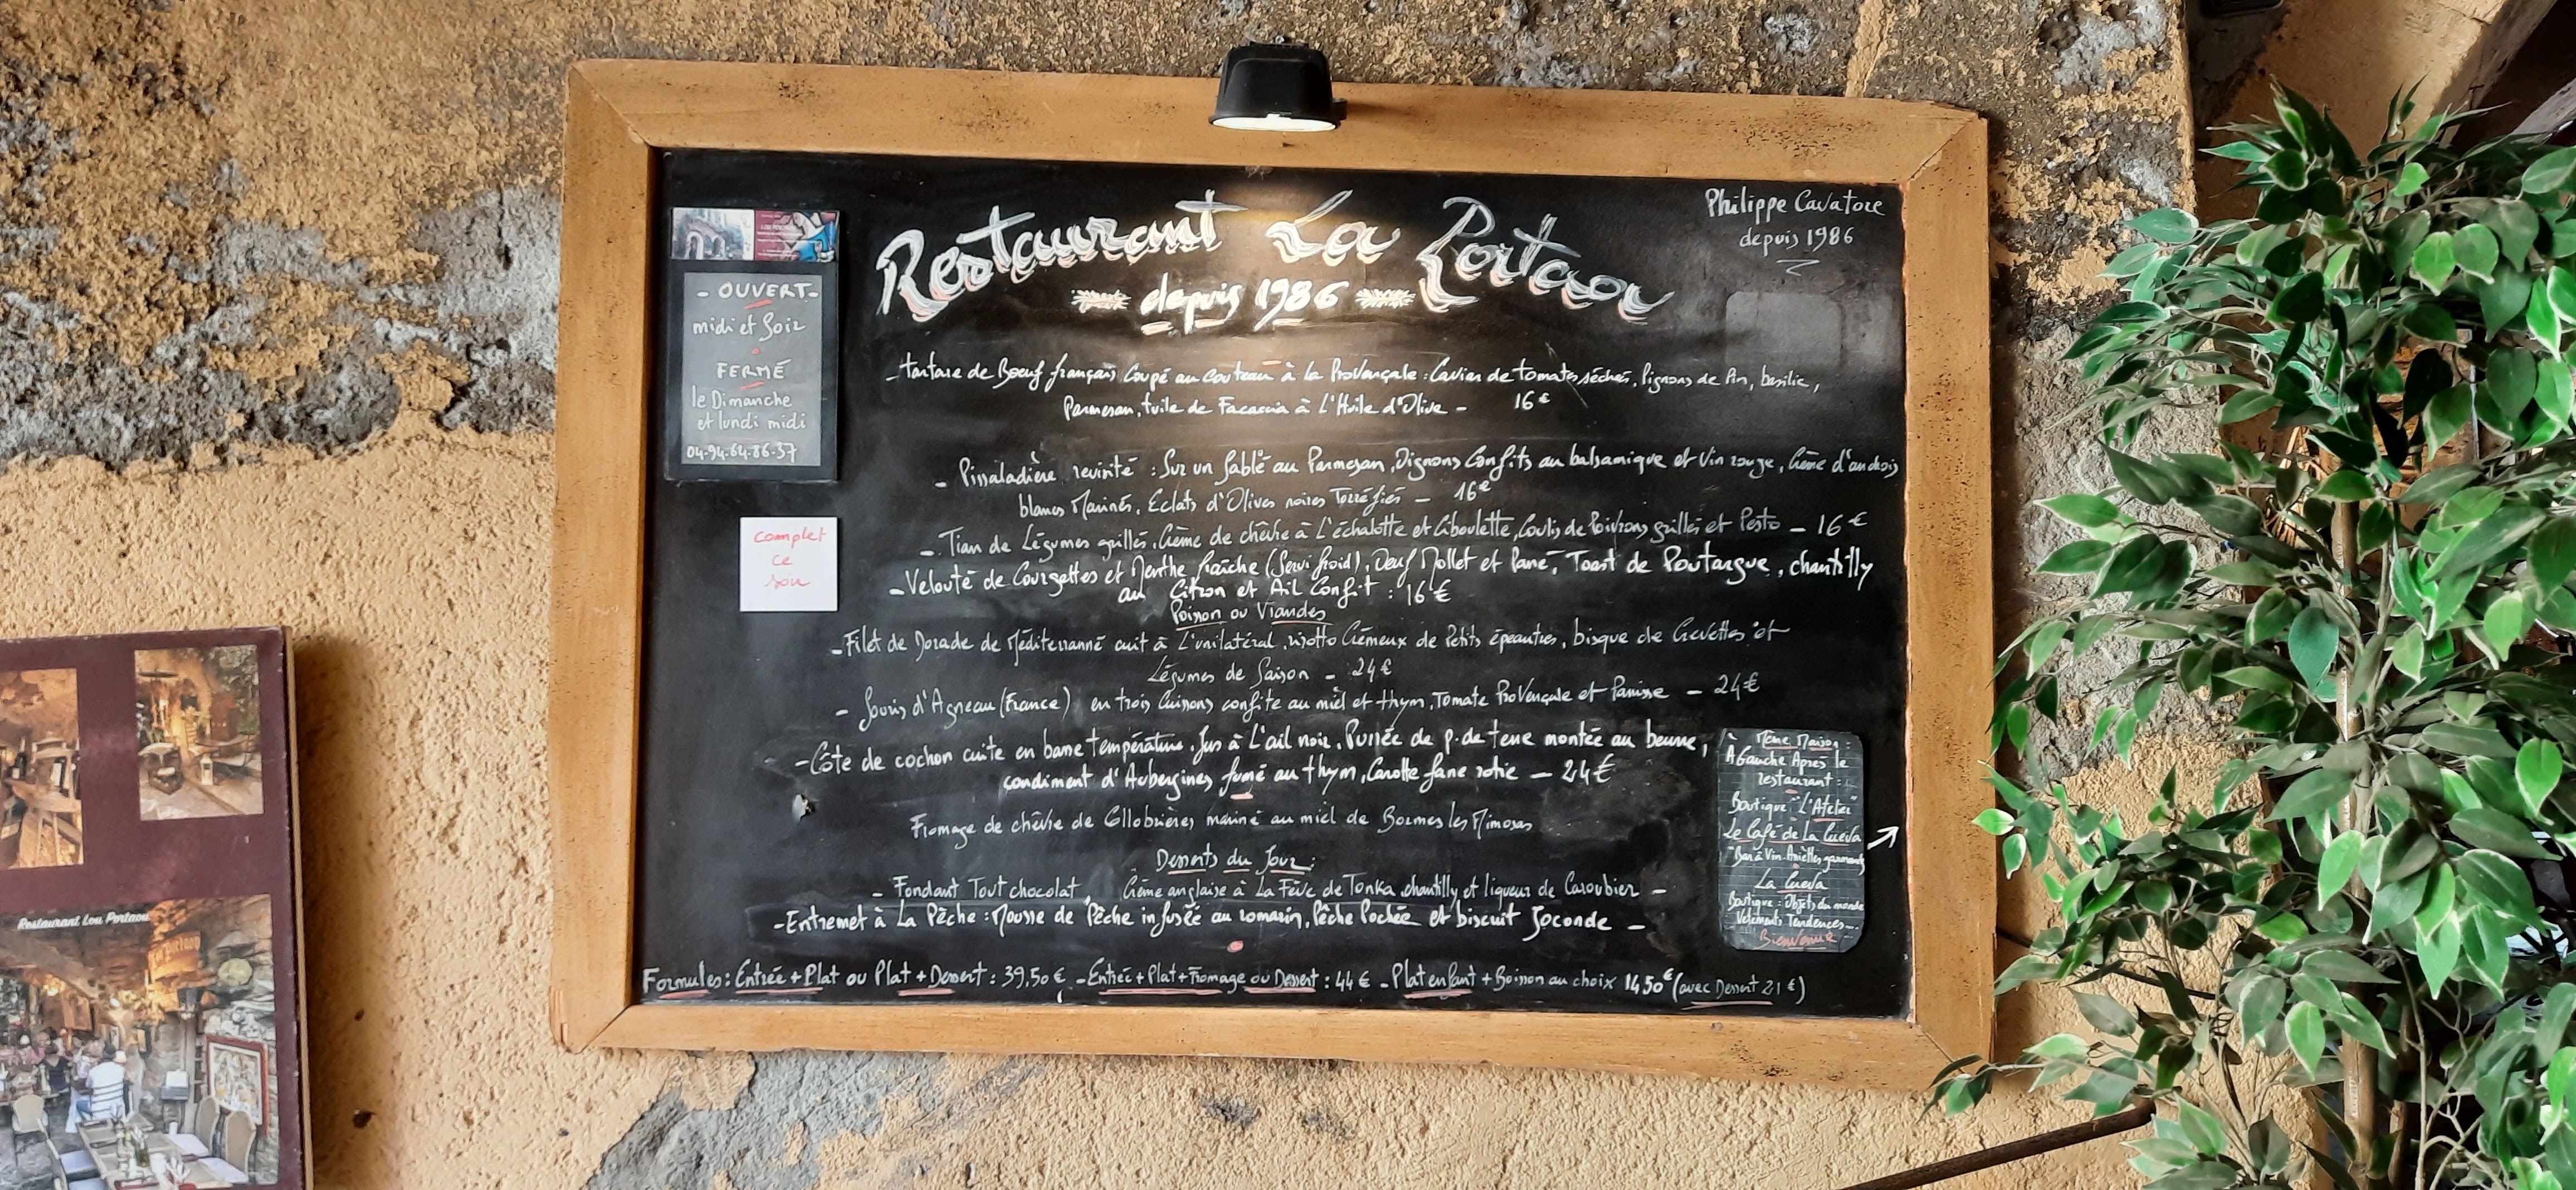 Restaurant La Portaou
depuis 1986
Philippe Cavatore
depuis 1986
- OUVERT -
midi et Soir
FERMÉ
le Dimanche
et lundi midi
04.94.64.86.37
complet
ce
soir
- tartare de Boeuf français Coupé au Couteau à la Provençale : Caviar de tomates séchés, Pignons de Pin, basilic,
Parmesan, tuile de Facaccia à L'Huile d'Olive - 16€
- Pissaladière revisité : Sur un Sablé au Parmesan, Oignons Confits au balsamique et Vin rouge, Crème d'anchois
blancs Marinés, Eclats d'Olives noires Torréfiés - 16€
- Tian de Légumes grillés, Crème de chèvre à L'échalotte et Ciboulette, Coulis de Poivrons grillés et Pesto - 16€
- Velouté de Courgettes et Menthe fraîche (Servi froid), Oeuf Mollet et Pané, Toast de Poutargue, chantilly
au Citron et Ail Confit : 16€
Poisson ou Viandes
- Filet de Dorade de Méditerranné cuit à L'unilatéral, risotto Crémeux de Petits épeautres, bisque de Crevettes et
Légumes de Saison - 24€
- Souris d'Agneau (France) en trois Cuissons confite au miel et thym, Tomate Provençale et Panisse - 24€
- Côte de cochon cuite en basse température, Jus à L'ail noir, Purrée de p. de terre montée au beurre,
condiment d'Aubergines fumé au thym, Carotte fane rotie - 24€
Fromage de chèvre de Collobrières mariné au miel de Bormes les Mimosas
Desserts du Jour :
- Fondant Tout chocolat, Crème anglaise à La Fève de Tonka, chantilly et liqueur de Caroubier -
- Entremet à La Pêche : Mousse de Pêche infusée au romarin, Pêche Pochée et biscuit Joconde -
Formules : Entrée + Plat ou Plat + Dessert : 39,50€ - Entrée + Plat + Fromage ou Dessert : 44€ - Plat enfant + Boisson au choix 14,50€ (avec Dessert 21€)
Même Maison :
À Gauche Après le
restaurant :
Boutique "L'Atelier"
Le Café de La Cueva
"Bar à Vin - Assiettes gourmandes
La Cueva
Boutique : Objets du monde
Vêtements Tendances...
Bienvenue
Restaurant Lou Portaou